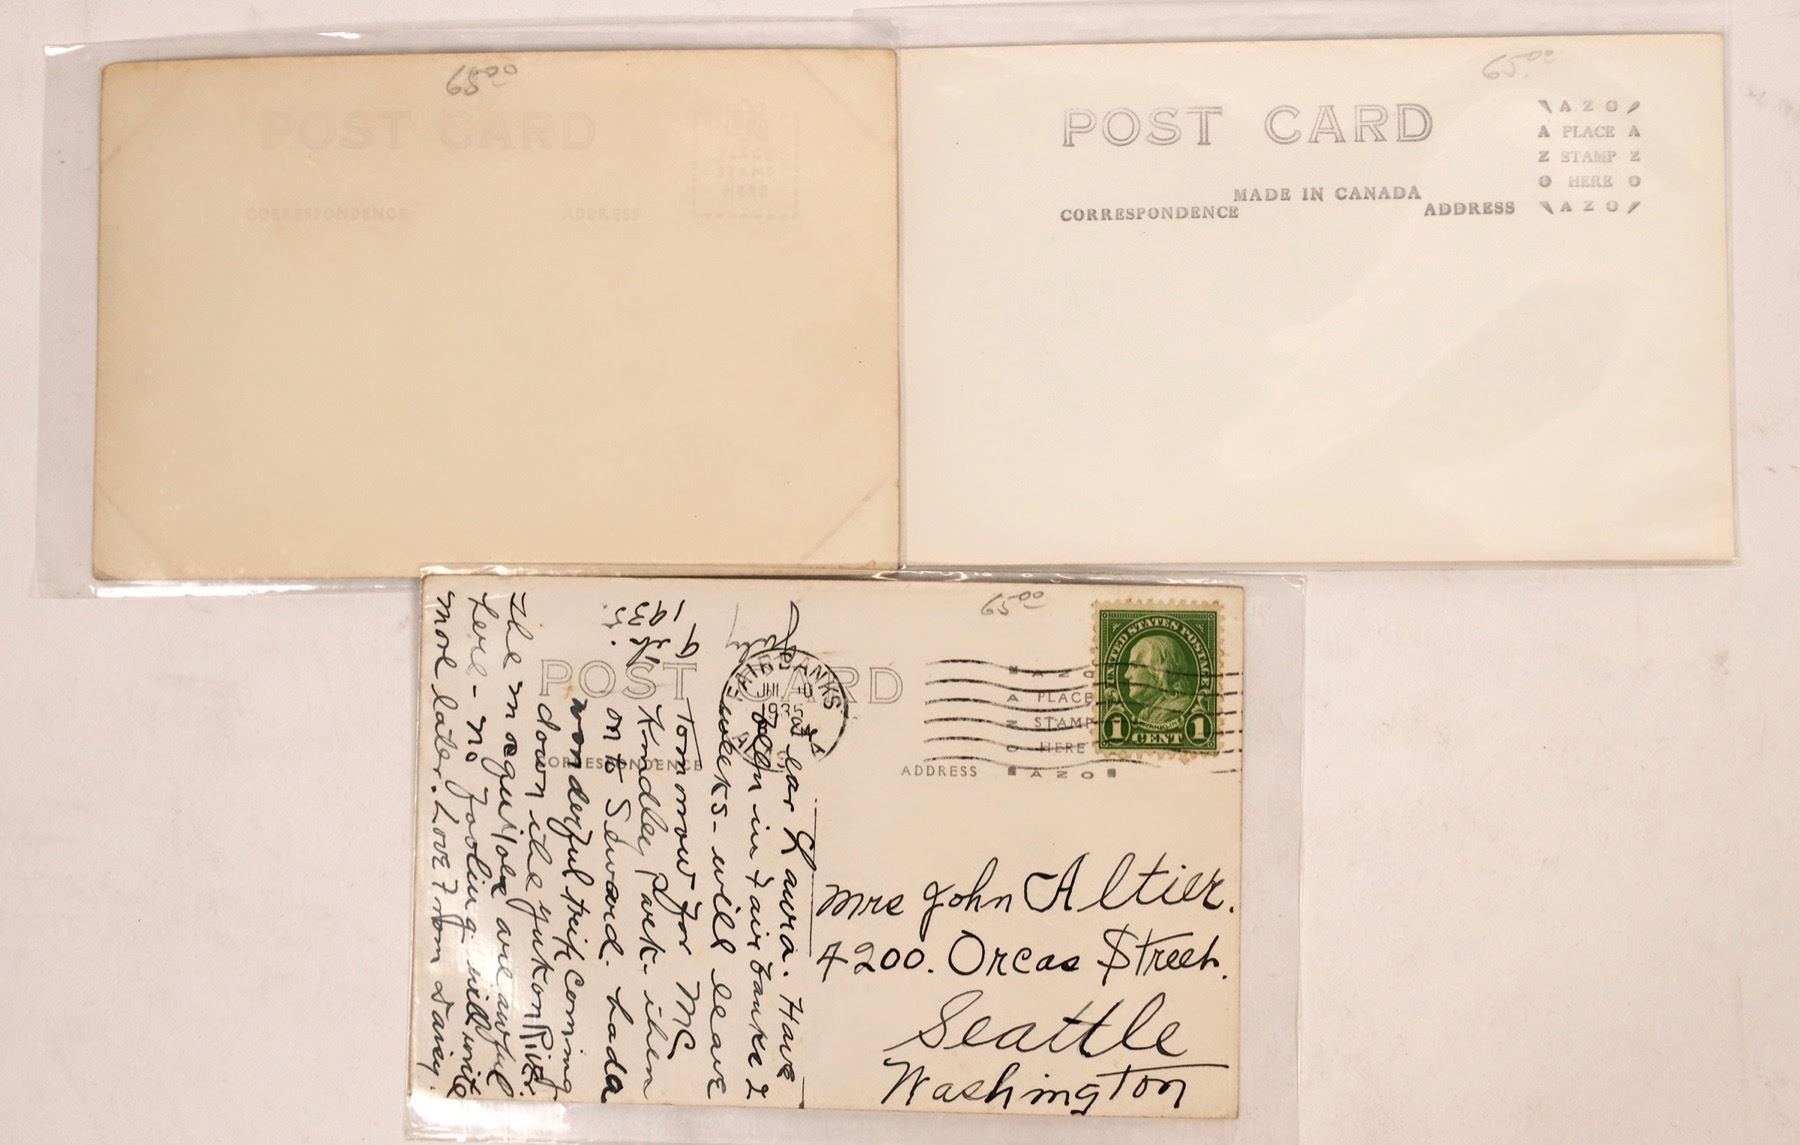 65.00
POST CARD
PLACE
STAMP
HERE
CORRESPONDENCE
ADDRESS
65.00
POST CARD
MADE IN CANADA
CORRESPONDENCE
ADDRESS
AZO
A PLACE A
Z STAMP Z
O HERE O
AZO
65.00
POST CARD
CORRESPONDENCE
ADDRESS
AZO
A PLACE
Z STAMP
O HERE
AZO
UNITED STATES POSTAGE
FRANKLIN
1 CENT 1
FAIRBANKS
JUL
1935
July
9th
1935.
Dear Laura. Have
been in Fairbanks 2
weeks - will leave
Tomorrow for Mc
Kindley Park - then
on to Seward. had a
wonderful trip coming
down the Yukon River.
The mosquitoes are awful
here - no fooling. will write
more later. Love from Davey.
Mrs John Altier.
4200. Orcas Street.
Seattle
Washington